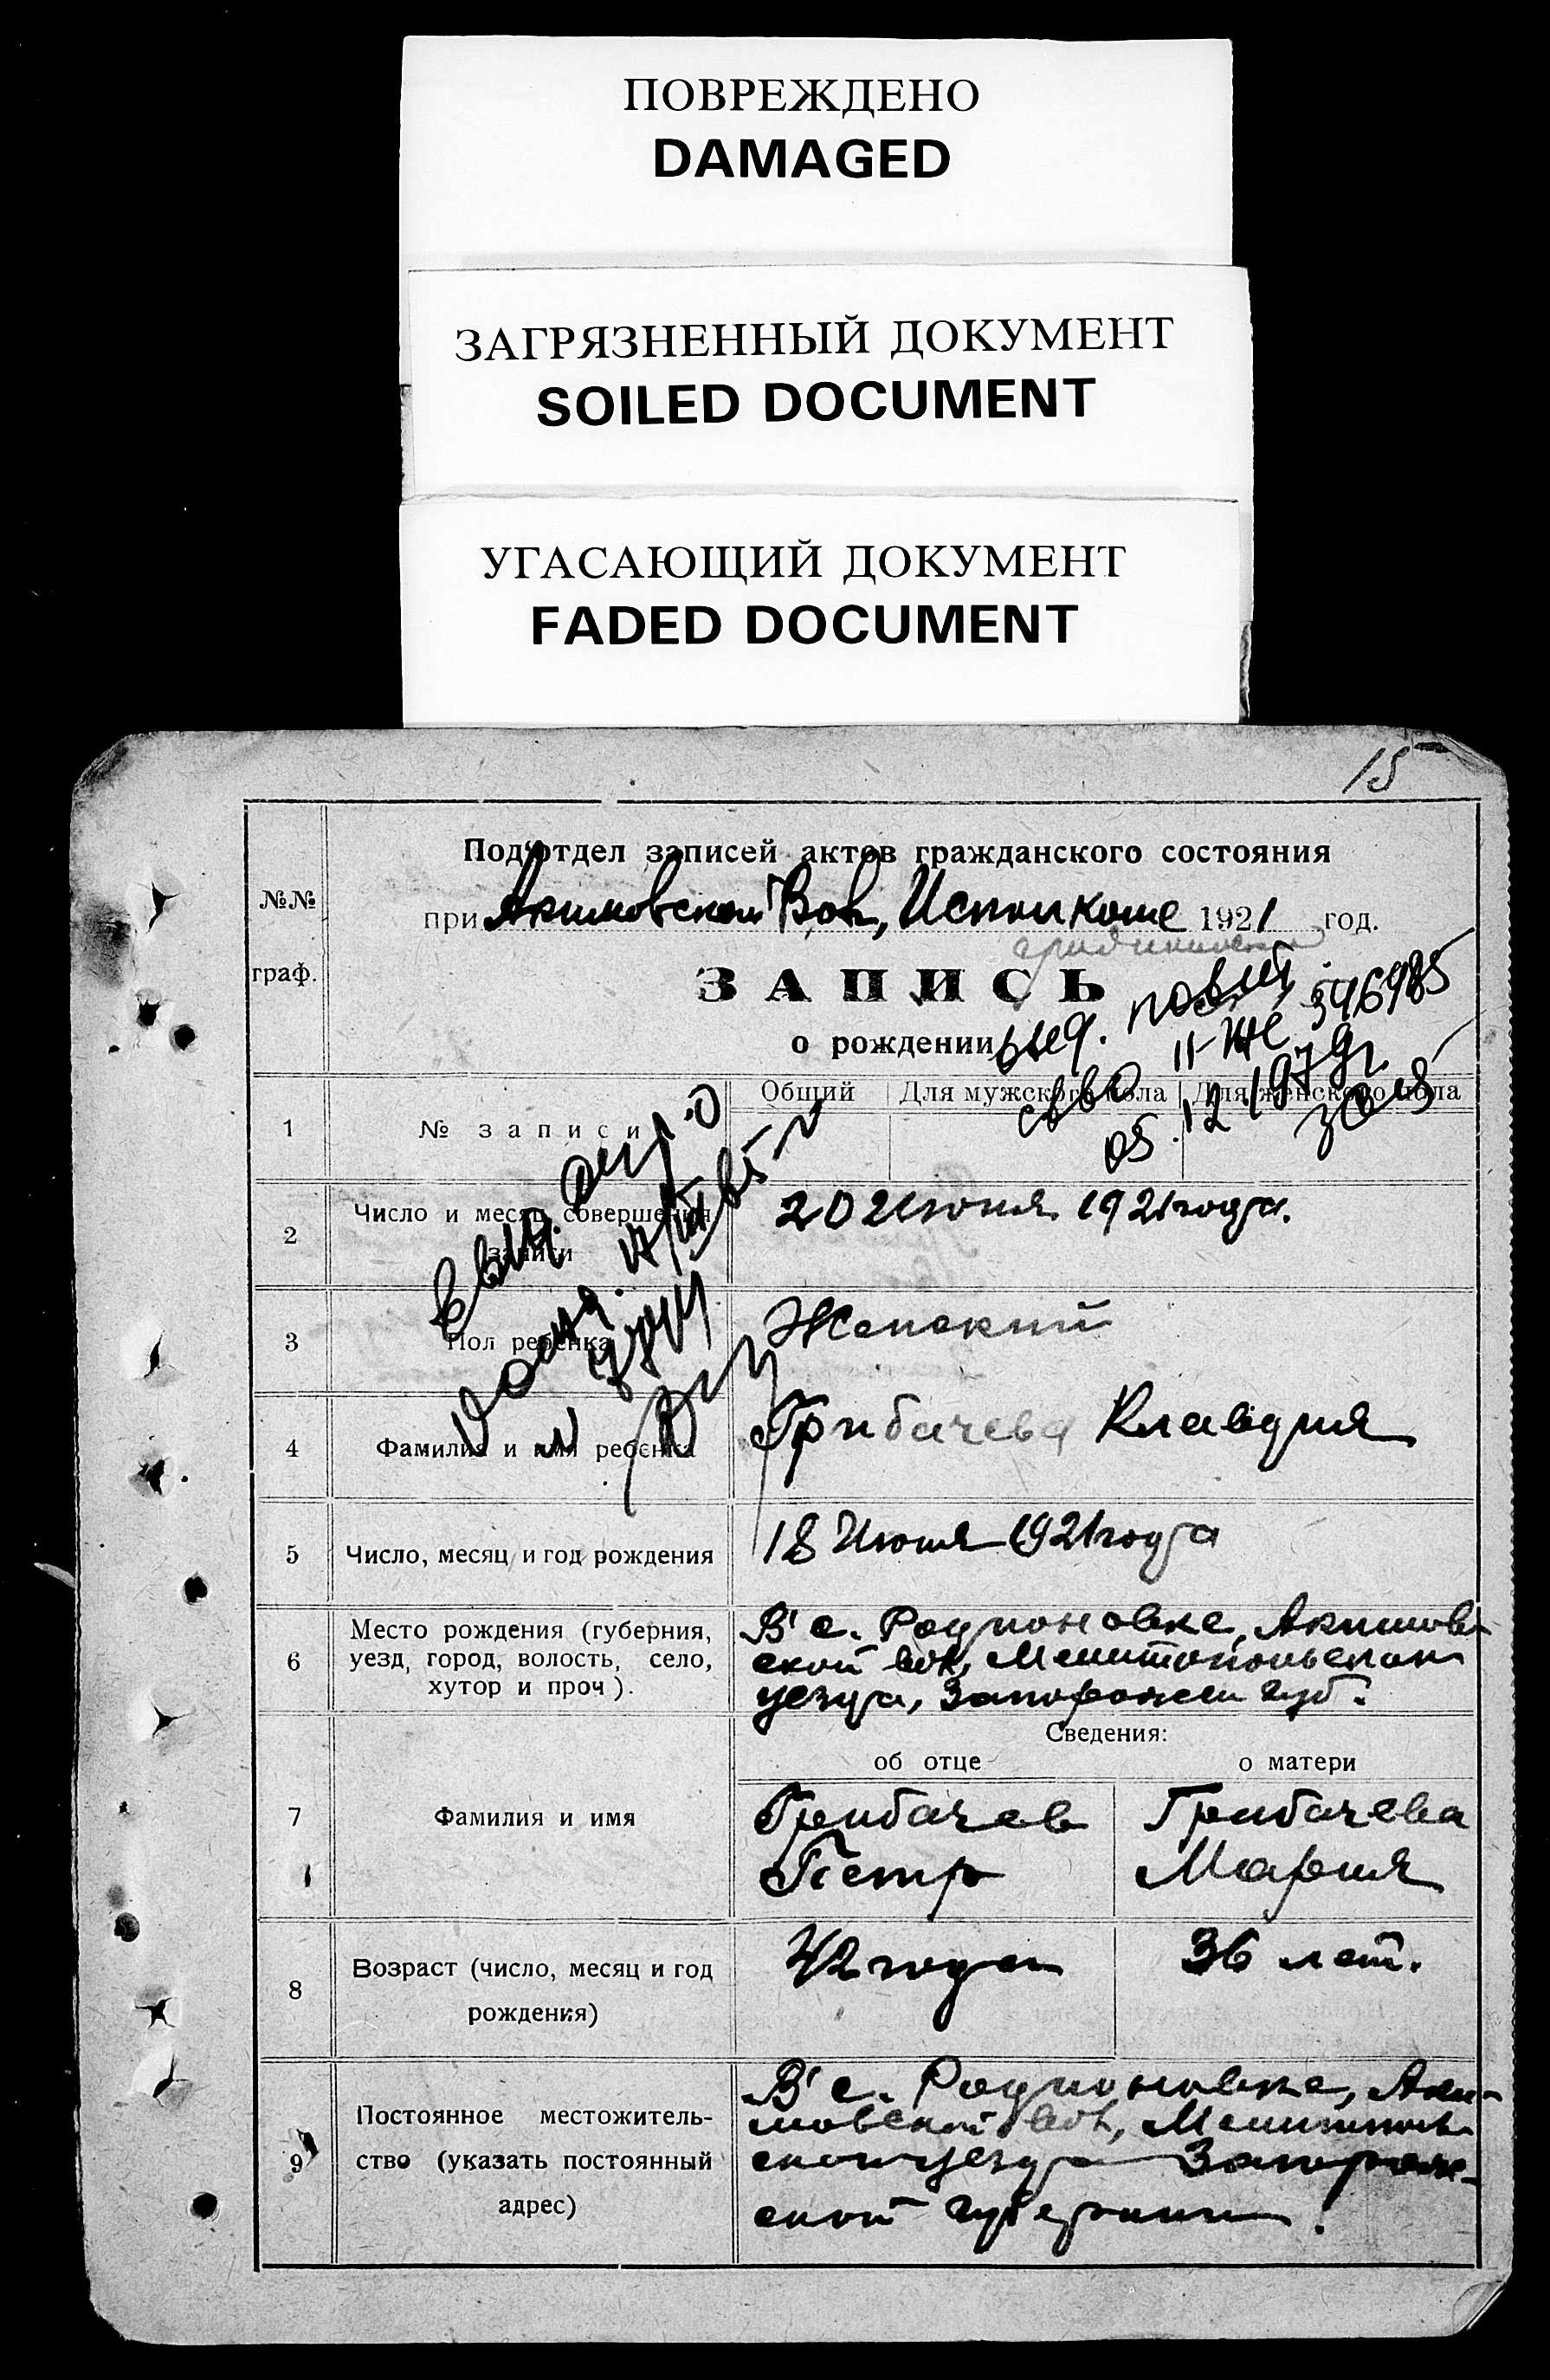 ПОВРЕЖДЕНО
DAMAGED
ЗАГРЯЗНЕННЫЙ ДОКУМЕНТ
SOILED DOCUMENT
УГАСАЮЩИЙ ДОКУМЕНТ
FADED DOCUMENT
15
№№
граф.
Подотдел записей актов гражданского состояния
при Акимовском Вол, Исполкоме 1921 год.
ЗАПИСЬ
о рождении
выд. новый
св во II-ЖС 546985
05.12.1979г.
Общий Для мужского пола Для женского пола
1 № записи
2 Число и месяц совершения
записи
20 Июня 1921 года.
3 Пол ребенка Женский
4 Фамилия и имя ребенка Грибачева Клавдия
5 Число, месяц и год рождения 18 Июня 1921 года
6 Место рождения (губерния,
уезд, город, волость, село,
хутор и проч).
В с. Родионовке, Акимов-
ской вол, Мелитопольского
уезда, Запорожск губ.
Сведения:
об отце о матери
7 Фамилия и имя
Грибачев Грибачева
Петр Мария
8 Возраст (число, месяц и год
рождения)
42 года 36 лет.
9 Постоянное местожитель-
ство (указать постоянный
адрес)
В с. Родионовке, Аки-
мовской вол, Мелитополь-
ского уезда Запорож-
ской губернии.